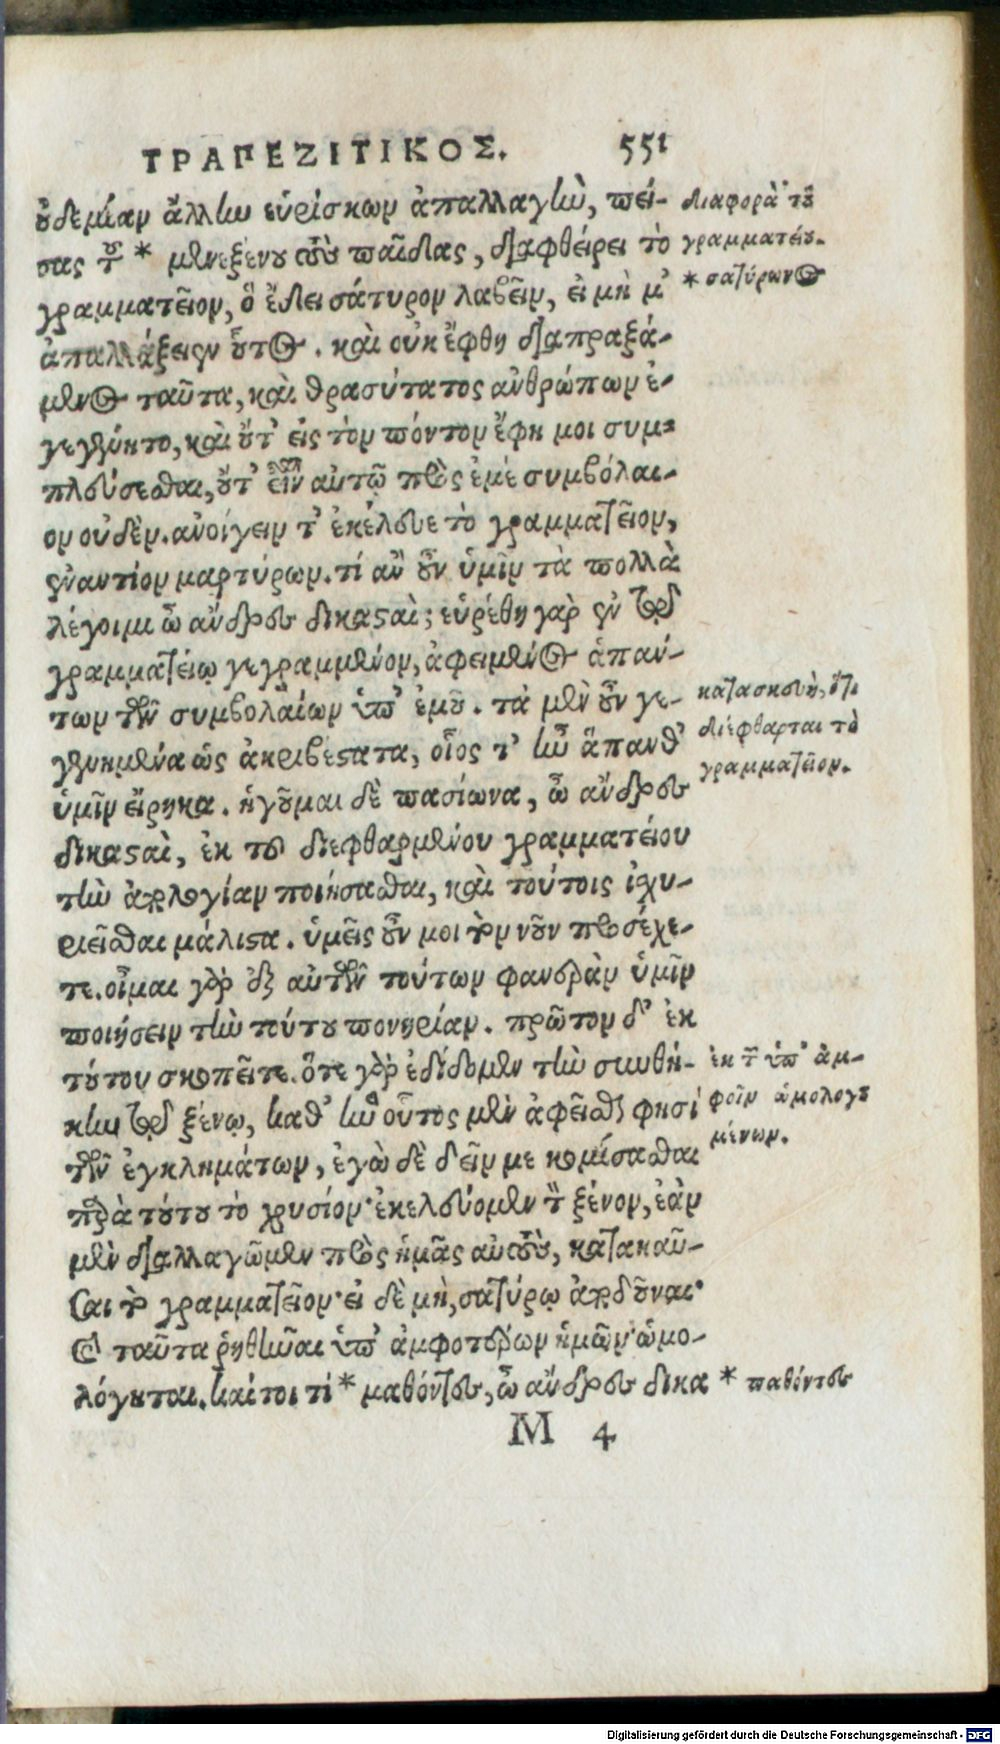 ΤΡΑΠΕΖΙΤΙΚΟΣ. 551
οὐδεμίαν ἄλλην εὑρίσκων ἀπαλλαγὴν, πεί-
σας τοῦ * μενεξένου τοὺς παῖδας, διαφθείρει τὸ
γραμματεῖον, ὃ ἔδει σάτυρον λαβεῖν, εἰ μὴ μ’
ἀπαλλάξειεν οὗτος. καὶ οὐκ ἔφθη διαπραξά-
μενος ταῦτα, καὶ θρασύτατος ἀνθρώπων ἐ-
γεγένητο, καὶ οὔτ’ εἰς τὸν πόντον ἔφη μοι συμ-
πλεύσεσθαι, οὔτ’ εἶναι αὐτῷ πρὸς ἐμὲ συμβόλαι-
ον οὐδὲν. ἀνοίγειν τ’ ἐκέλευε τὸ γραμματεῖον,
ἐναντίον μαρτύρων. τί ἂν οὖν ὑμῖν τὰ πολλὰ
λέγοιμι ὦ ἄνδρες δικασταὶ; εὑρέθη γὰρ ἐν τῷ
γραμματείῳ γεγραμμένον, ἀφειμένος ἁπάν-
των τῶν συμβολαίων ὑπ’ ἐμοῦ. τὰ μὲν οὖν γε-
γενημένα ὡς ἀκριβέστατα, οἷος τ’ ἦν ἅπανθ’
ὑμῖν εἴρηκα. ἡγοῦμαι δὲ πασίωνα, ὦ ἄνδρες
δικασταὶ, ἐκ τοῦ διεφθαρμένου γραμματείου
τὴν ἀπολογίαν ποιήσασθαι, καὶ τούτοις ἰσχυ-
ριεῖσθαι μάλιστα. ὑμεῖς οὖν μοι τὸν νοῦν προσέχε-
τε. οἶμαι γὰρ ἐξ αὐτῶν τούτων φανερὰν ὑμῖν
ποιήσειν τὴν τούτου πονηρίαν. πρῶτον δ’ ἐκ
τούτου σκοπεῖτε. ὅτε γὰρ ἐδίδομεν τὴν συνθή-
κην τῷ ξένῳ, καθ’ ἣν οὗτος μὲν ἀφεῖσθαι φησὶ
τῶν ἐγκλημάτων, ἐγὼ δὲ δεῖν με κομίσασθαι
παρὰ τούτου τὸ χρυσίον· ἐκελεύομεν τὸν ξένον, ἐὰν
μὲν διαλλαγῶμεν πρὸς ἡμᾶς αὐτοὺς, κατακαῦ-
σαι τὸ γραμματεῖον· εἰ δὲ μὴ, σατύρῳ ἀποδοῦναι·
καὶ ταῦτα ῥηθῆναι ὑπ’ ἀμφοτέρων ἡμῶν ὡμο-
λόγηται. καίτοι τί * μαθόντες, ὦ ἄνδρες δικα
M 4
διαφορὰ τοῦ
γραμματείου.
* σατύρωνος
κατασκευὴ, ὅτι
διέφθαρται τὸ
γραμματεῖον.
ἐκ τῶν ὑπ’ ἀμ-
φοῖν ὡμολογου
μένων.
* παθόντες
Digitalisierung gefördert durch die Deutsche Forschungsgemeinschaft - DFG